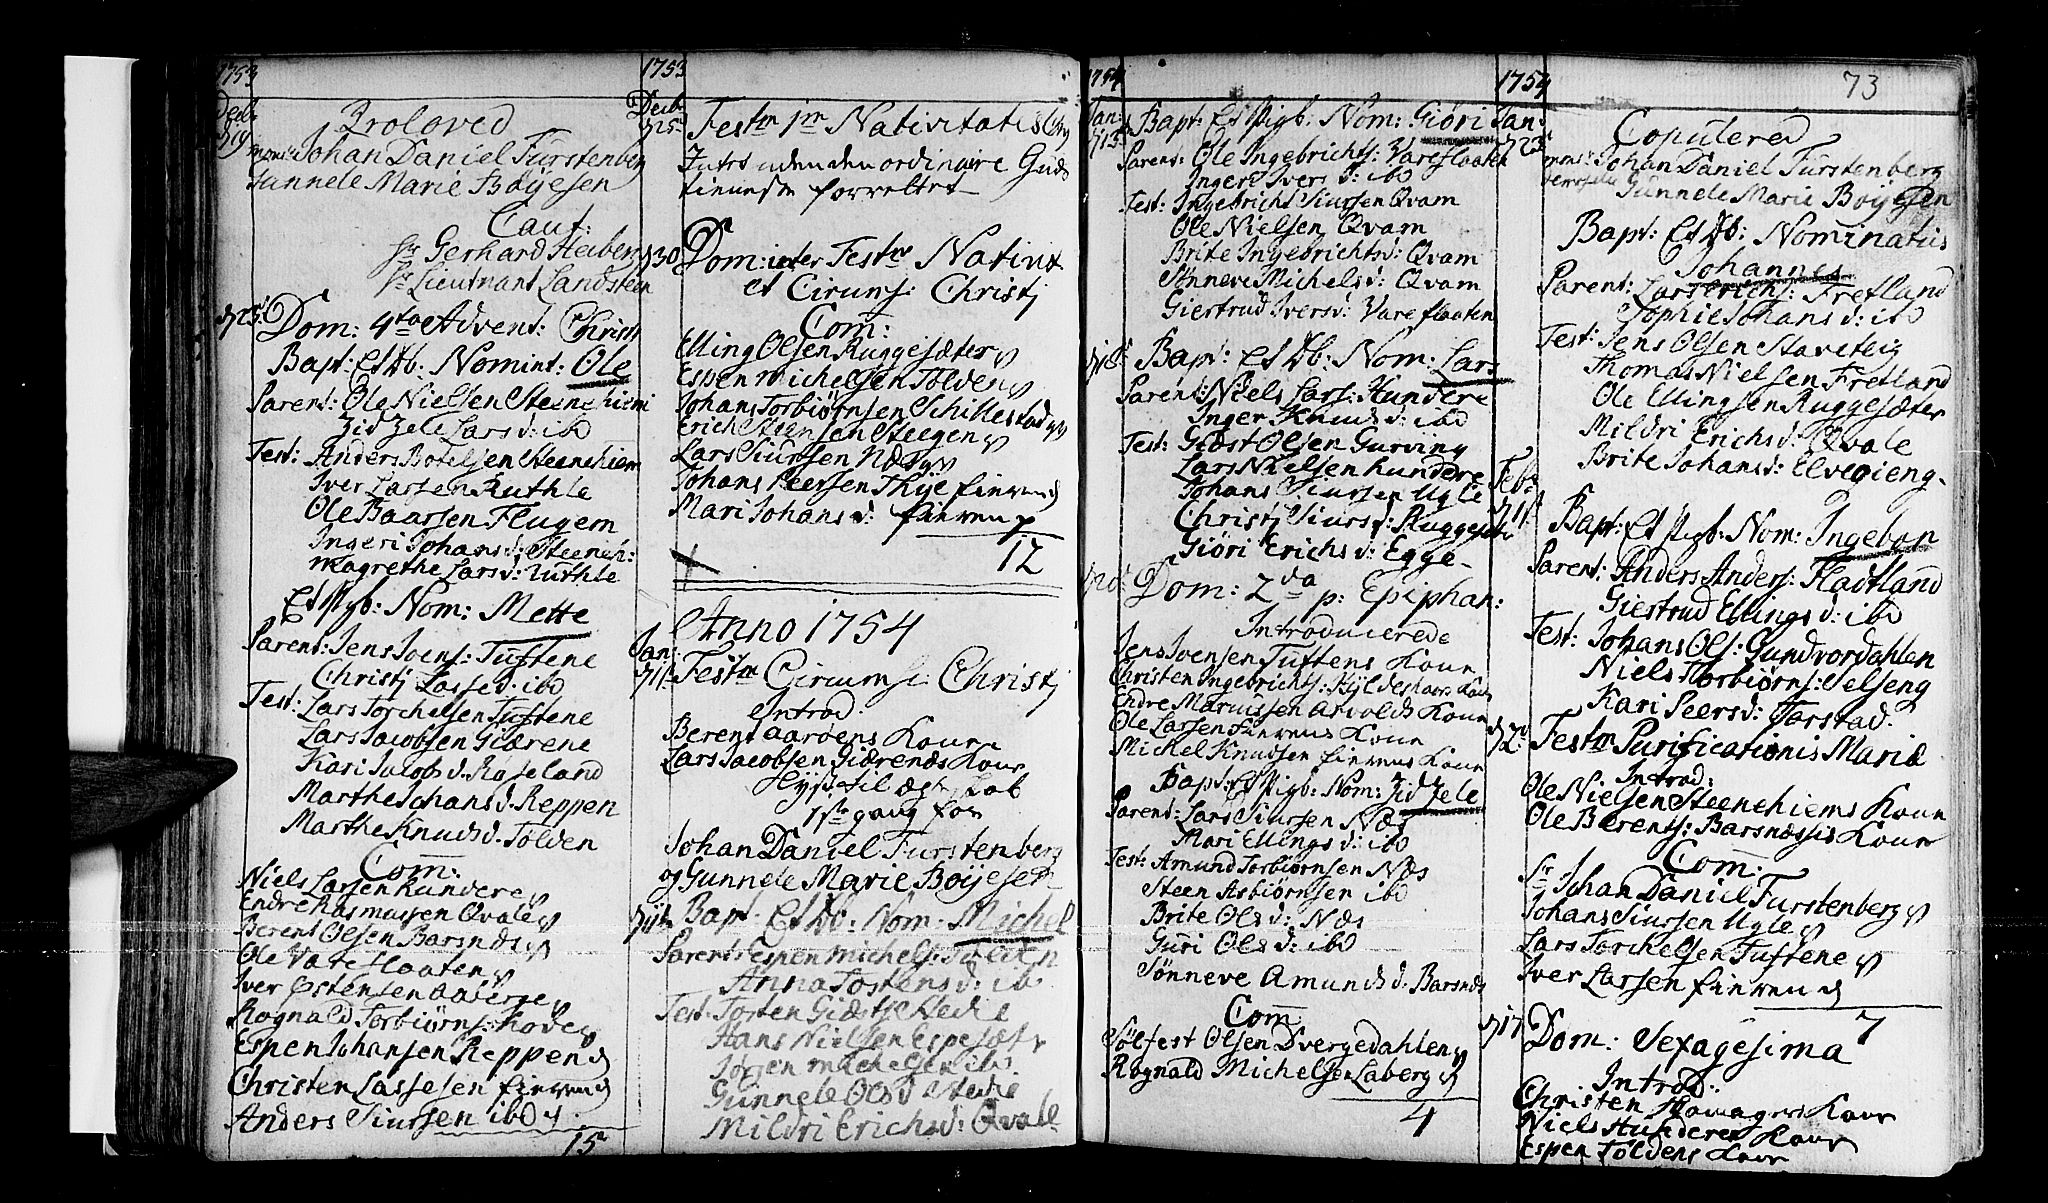 1753
Decb:
d 19
Troloved
Monsr Johan Daniel Fürstenberg
Gunnele Marie Bøijesen
Caut:
Sr Gerhard Heiberg
Sr Lieutnant Landsteen
d 23
Dom: 4ta Advent: Christi
Bapt: Et Db: Nomint: Ole
Parent: Ole Nielsen Steenehiem
Zidzele Lars d: ibd
Test: Anders Botelsen Steenehiem
Iver Larsen Ruthle
Ole Baarsen Flugem
Ingeri Johans d: Steeneh:
Magrethe Lars d: Ruthle
Et Pigb: Nom: Mette
Parent: Jens Ivens: Tuftene
Christj Lasse d: ibd
Test: Lars Torchelsen Tuftene
Lars Jacobsen Giærene
Kari Jacobs d. Røseland
Marthe Johans d. Reppen
Marthe Knuds d. Tolden
Com:
Niels Larsen Hundere
Endre Rasmussen Qvale
Berent Olsen Barsnæs
Ole Vareflaaten
Iver Østensen Aaberge
Rognald Torbiørns: Hove
Espen Johansen Reppen
Christen Lassesen
Anders Siursen ibd
15
1753
Decb:
d 25
Festm 1m Nativitatis Chrj
Intet uden den ordinaire Guds
tieneste forrettet
d 30
Dom: inter Festm Nativit
et Circums: Christj
Com:
Elling Olsen Ruggesæter
Espen Michelsen Tolden
Johans Torbiørnsen Schillestad
Erich Steensen Steegen
Lars Siursen Næs
Johans Peersen Thye
Mari Johans d:
12
Anno 1754
Jan:
d 1
Festm Circums: Christj
Introd:
Berent Aaroens Kone
Lars Jacobsen Giærenes Kone
Lyst til Ægteskab
1ste gang for
Johan Daniel Fürstenberg
og Gunnele Marie Bøijesen
Bapt: Et Db: Nom: Michel
Parent: Espen Michels: Tolden
Anna Tostens d: ibd
Test: Torsten Giæstsen
Hans Nielsen Espesæt
Jørgen Michelsen ibd
Gunnele Ols d
Mildri Erichs d: Qvale
1754
Jan:
d 13
Bapt: Et Pigb: Nom: Giöri
Parent: Ole Ingebrichts: Vareflaaten
Ingeri Ivers d: ibd
Test: Ingebricht Siursen Qvam
Ole Nielsen Qvam
Brite Ingebrichts d: Qvam
Anneve Michels d: Qvam
Giertrud Ivers d: Vareflaaten
Bapt: Et Db: Nom: Lars
Parent: Niels Lars: Hundere
Inger Knuds d: ibd
Test: Giæst Olsen Gurving
Lars Nielsen Hundere
Johans Siursen Ugle
Christj Siurs d: Ruggesæter
Giöri Erichs d: Egge
d 20
Dom: 2da p: Epiphan:
Introducerede
Jens Ivensen Tuftens Kone
Christen Ingebrichts: Kone
Endre Marcussen Arvolds Kone
Ole Larsen Kone
Michel Knudsen Kone
Bapt: Et Pigb: Nom: Zidzele
Parent: Lars Siursen Næs
Mari Ellings d: ibd
Test: Amund Torbiørnsen Næs
Steen Asbiørnsen ibd
Brite Ols d: Næs
Guri Ols d: ibd
Sönneve Amunds d. Barsnæs
Com
Sölfest Olsen Dvergedahlen
Rognald Michelsen Laberg
4
1754
73
Jan:
d 23
Copulered
Monsr: Johan Daniel Fürstenberg
Gunnele Marie Bøijesen
Bapt: Et Db: Nominatus
Johannes
Parent: Lars Erichs: Fretland
Sophie Johans d: ibd
Test: Jens Olsen Staveteig
Thomas Nielsen Fretland
Ole Ellingsen Ruggesæter
Mildri Erichs d: Qvale
Brite Johans d: Elvegieng
Feb:
d 1
Bapt: Et Pigb: Nom: Ingebor
Parent: Anders Anders: Fladtland
Giertrud Ellings d: ibd
Test: Johans Ols: Gundvordahlen
Niels Torbiørns: Selseng
Kari Peers d: Torstad
d 2
Festm Purificationis Mariæ
Introd:
Ole Nielsen Steenehiems Kone
Ole Berents: Barsnæsses Kone
Com:
Sr Johan Daniel Fürstenberg
Johans Siursen Ugle
Lars Torchelsen Tuftene
Iver Larsen
7
d 17
Dom: Sexagesima
Introd:
Christen Kone
Niels Hunderes Kone
Espen Toldens Kone